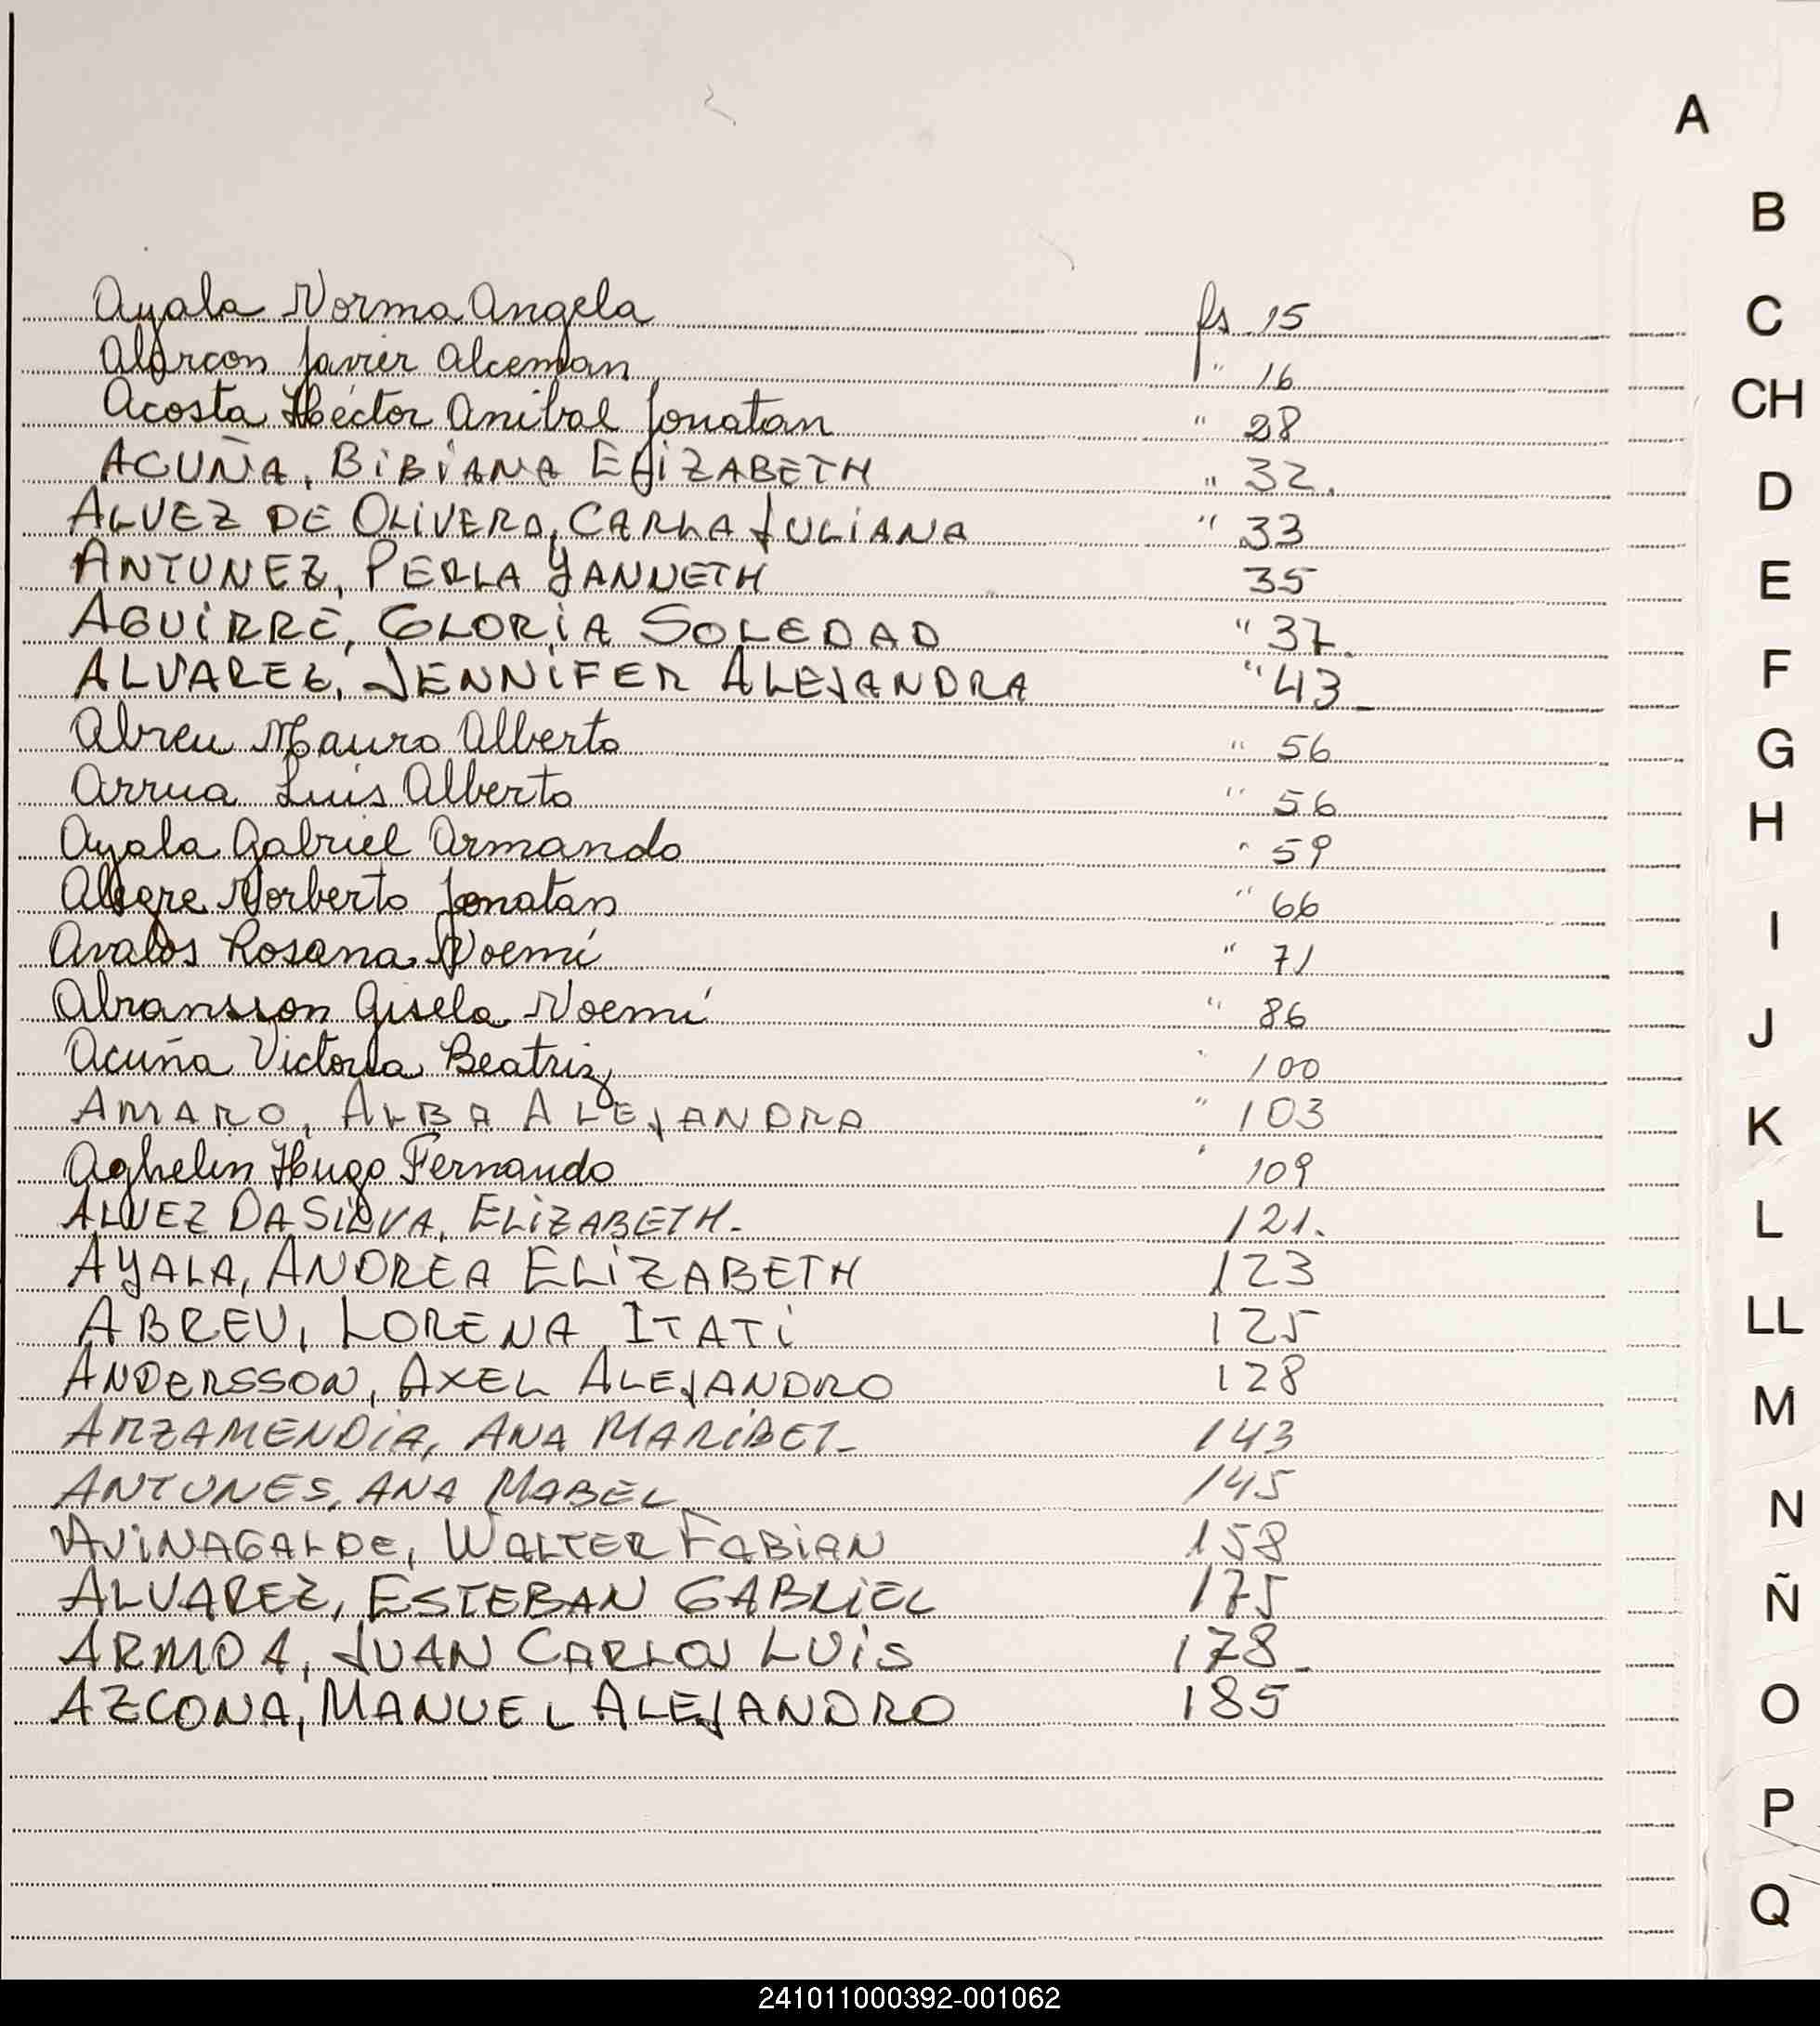 A
B
C
CH
D
E
F
G
H
I
J
K
L
LL
M
N
Ñ
O
P
Q
Ayala Norma Angela fs 15
Alarcon Javier Alceman " 16
Acosta Héctor Anibal Jonatan " 28
ACUÑA, BIBIANA ELIZABETH " 32.
ALVEZ DE OLIVERA, CARLA JULIANA " 33
ANTUNEZ, PERLA YANNETH 35
AGUIRRE, GLORIA SOLEDAD " 37.
ALVAREZ, JENNIFER ALEJANDRA " 43_
Abreu Mauro Alberto " 56
Arrua Luis Alberto " 56
Ayala Gabriel Armando " 59
Alegre Norberto Jonatan " 66
Avalos Rosana Noemí " 71
Abransson Gisela Noemí " 86
Acuña Victoria Beatriz " 100
AMARO, ALBA ALEJANDRA " 103
Aghelin Hugo Fernando " 109
ALVEZ DA SILVA, ELIZABETH- 121.
AYALA, ANDREA ELIZABETH 123
ABREU, LORENA ITATI 125
ANDERSSON, AXEL ALEJANDRO 128
ARZAMENDIA, ANA MARIBEL- 143
ANTUNES, ANA MABEL 145
AVINAGALDE, WALTER FABIAN 158
ALVAREZ, ESTEBAN GABRIEL 175
ARMOA, JUAN CARLOS LUIS 178_
AZCONA, MANUEL ALEJANDRO 185
241011000392-001062